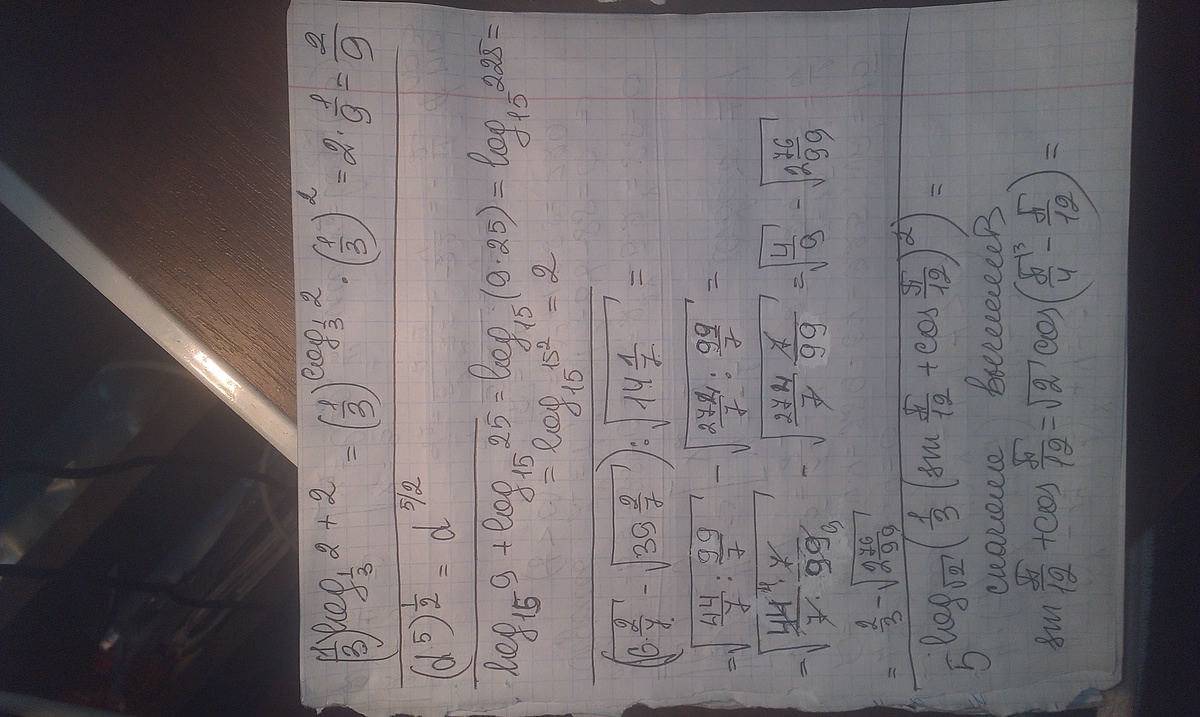 (1/3)^(log_(1/3) 2 + 2) = (1/3)^(log_(1/3) 2) · (1/3)^2 = 2 · 1/9 = 2/9
(d^5)^(1/2) = d^(5/2)
log_15 9 + log_15 25 = log_15 (9·25) = log_15 225 =
= log_15 15^2 = 2
(√(6 2/7) - √(39 2/7)) : √(14 1/7) =
= √(44/7 : 99/7) - √(272/7 : 99/7) =
= √(44·7/7·99) - √(272/7 · 7/99) = √(4/9) - √(276/99)
= 2/3 - √(276/99)
5 log_√2 (1/3 (sin π/12 + cos π/12)^2) =
сначала вычислить
sin π/12 + cos π/12 = √2 cos (π/4 - π/12) =